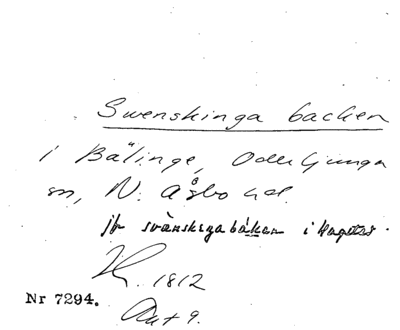 Swenskinga backen
i Bälinge, Oderljunga
sn, N. Åsbo hd.
jfr svänskigabåken i
1812
Nr 7294.
Akt 9.